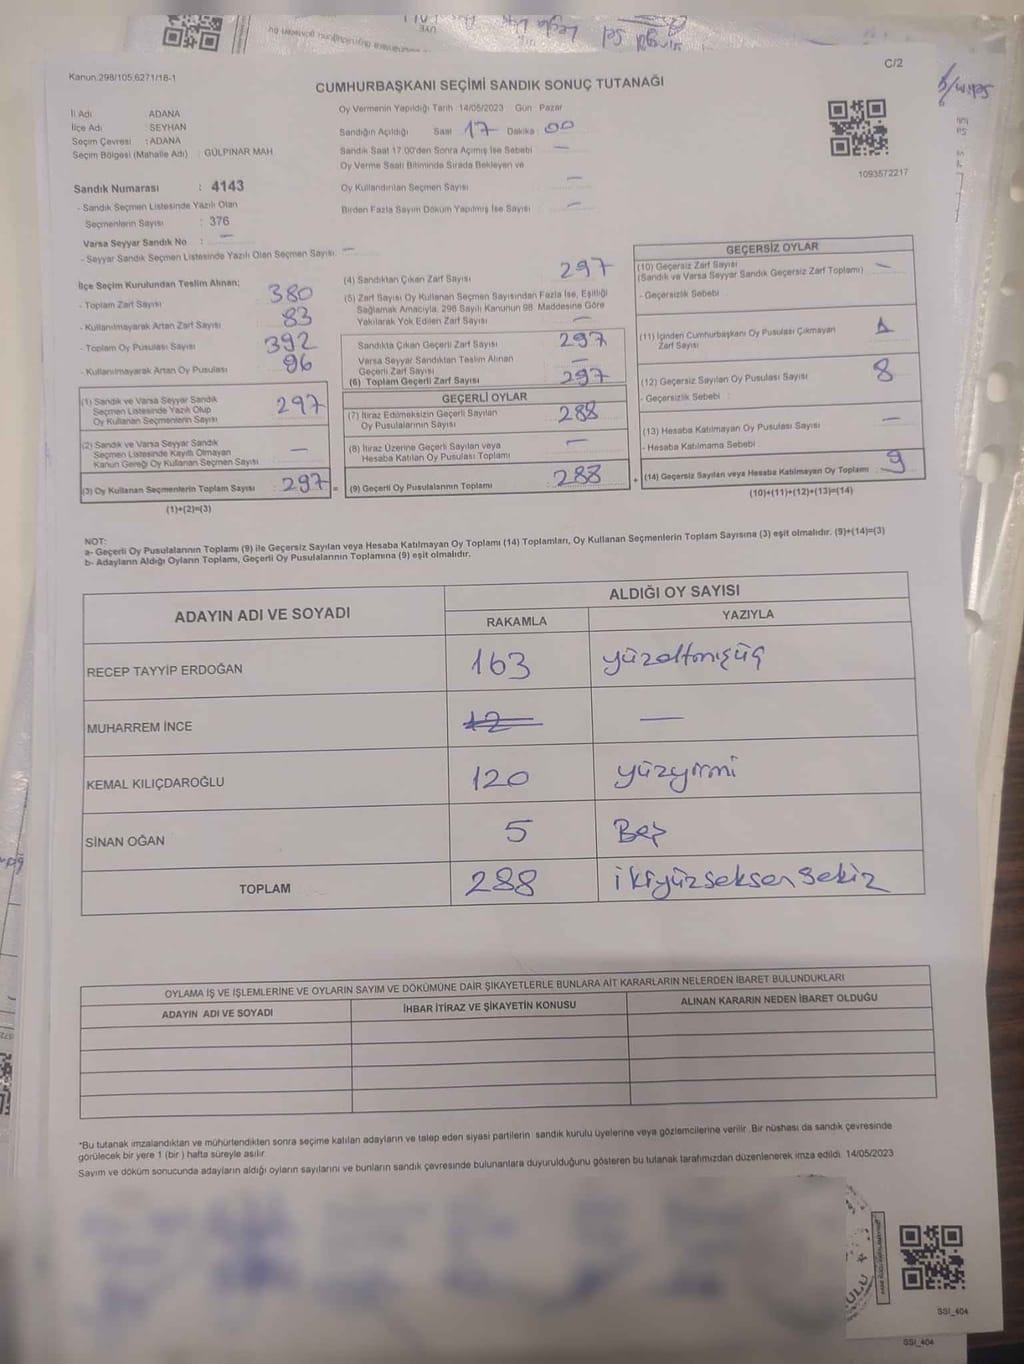 C/2
Kanun.298/105,6271/18-1
CUMHURBAŞKANI SEÇİMİ SANDIK SONUÇ TUTANAĞI
İl Adı ADANA
İlçe Adı : SEYHAN
Seçim Çevresi : ADANA
Seçim Bölgesi (Mahalle Adı) : GÜLPINAR MAH
Sandık Numarası : 4143
- Sandık Seçmen Listesinde Yazılı Olan
Seçmenlerin Sayısı : 376
Varsa Seyyar Sandık No : —
- Seyyar Sandık Seçmen Listesinde Yazılı Olan Seçmen Sayısı: —
Oy Vermenin Yapıldığı Tarih :14/05/2023 Gün : Pazar
Sandığın Açıldığı Saat 17 Dakika : 00
Sandık Saat 17.00'den Sonra Açımış İse Sebebi —
Oy Verme Saati Bitiminde Sırada Bekleyen ve
Oy Kullandırılan Seçmen Sayısı —
Birden Fazla Sayım Döküm Yapılmış İse Sayısı —
1093572217
İlçe Seçim Kurulundan Teslim Alınan;
- Toplam Zarf Sayısı 380
- Kullanılmayarak Artan Zarf Sayısı 83
- Toplam Oy Pusulası Sayısı 392
- Kullanılmayarak Artan Oy Pusulası 96
(1) Sandık ve Varsa Seyyar Sandık
Seçmen Listesinde Yazılı Olup
Oy Kullanan Seçmenlerin Sayısı 297
(2) Sandık ve Varsa Seyyar Sandık
Seçmen Listesinde Kayıtlı Olmayan
Kanun Gereği Oy Kullanan Seçmen Sayısı —
(3) Oy Kullanan Seçmenlerin Toplam Sayısı : 297 =
(1)+(2)=(3)
(4) Sandıktan Çıkan Zarf Sayısı 297
(5) Zarf Sayısı Oy Kullanan Seçmen Sayısından Fazla İse, Eşitliği
Sağlamak Amacıyla, 298 Sayılı Kanunun 98. Maddesine Göre
Yakılarak Yok Edilen Zarf Sayısı —
Sandıkta Çıkan Geçerli Zarf Sayısı 297
Varsa Seyyar Sandıktan Teslim Alınan
Geçerli Zarf Sayısı —
(6) Toplam Geçerli Zarf Sayısı 297
GEÇERLİ OYLAR
(7) İtiraz Edilmeksizin Geçerli Sayılan
Oy Pusulalarının Sayısı 288
(8) İtiraz Üzerine Geçerli Sayılan veya
Hesaba Katılan Oy Pusulası Toplamı —
(9) Geçerli Oy Pusulalarının Toplamı 288 +
GEÇERSİZ OYLAR
(10) Geçersiz Zarf Sayısı —
(Sandık ve Varsa Seyyar Sandık Geçersiz Zarf Toplamı)
- Geçersizlik Sebebi
(11) İçinden Cumhurbaşkanı Oy Pusulası Çıkmayan
Zarf Sayısı 1
(12) Geçersiz Sayılan Oy Pusulası Sayısı 8
- Geçersizlik Sebebi :
(13) Hesaba Katılmayan Oy Pusulası Sayısı —
- Hesaba Katılmama Sebebi
(14) Geçersiz Sayılan veya Hesaba Katılmayan Oy Toplamı 9
(10)+(11)+(12)+(13)=(14)
NOT:
a- Geçerli Oy Pusulalarının Toplamı (9) ile Geçersiz Sayılan veya Hesaba Katılmayan Oy Toplamı (14) Toplamları, Oy Kullanan Seçmenlerin Toplam Sayısına (3) eşit olmalıdır. (9)+(14)=(3)
b- Adayların Aldığı Oyların Toplamı, Geçerli Oy Pusulalarının Toplamına (9) eşit olmalıdır.
ADAYIN ADI VE SOYADI
ALDIĞI OY SAYISI
RAKAMLA YAZIYLA
RECEP TAYYİP ERDOĞAN 163 yüzaltmışüç
MUHARREM İNCE 12 —
KEMAL KILIÇDAROĞLU 120 yüzyirmi
SİNAN OĞAN 5 Beş
TOPLAM 288 ikiyüzseksensekiz
OYLAMA İŞ VE İŞLEMLERİNE VE OYLARIN SAYIM VE DÖKÜMÜNE DAİR ŞİKAYETLERLE BUNLARA AİT KARARLARIN NELERDEN İBARET BULUNDUKLARI
ADAYIN ADI VE SOYADI İHBAR İTİRAZ VE ŞİKAYETİN KONUSU ALINAN KARARIN NEDEN İBARET OLDUĞU
*Bu tutanak imzalandıktan ve mühürlendikten sonra seçime katılan adayların ve talep eden siyasi partilerin sandık kurulu üyelerine veya gözlemcilerine verilir. Bir nüshası da sandık çevresinde
görülecek bir yere 1 (bir) hafta süreyle asılır.
Sayım ve döküm sonucunda adayların aldığı oyların sayılarını ve bunların sandık çevresinde bulunanlara duyurulduğunu gösteren bu tutanak tarafımızdan düzenlenerek imza edildi. 14/05/2023
SSI_404
SSI_404